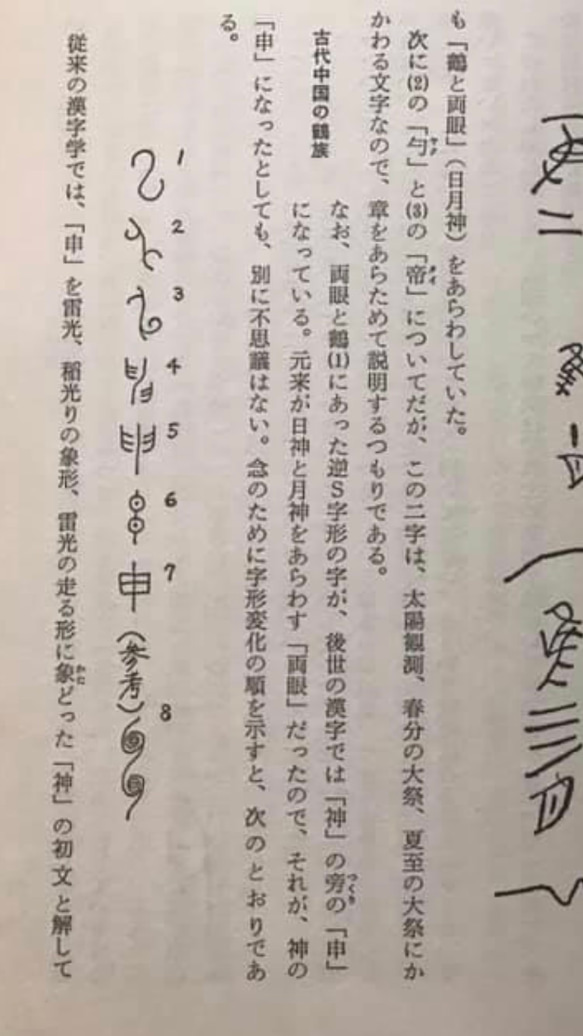 も「鶴と両眼」（日月神）をあらわしていた。
次に(2)の「勻」と(3)の「帝」についてだが、この二字は、太陽観測、春分の大祭、夏至の大祭にか
かわる文字なので、章をあらためて説明するつもりである。
古代中国の鶴族
なお、両眼と鶴(1)にあった逆S字形の字が、後世の漢字では「神」の旁の「申」
になっている。元来が日神と月神をあらわす「両眼」だったので、それが、神の
「申」になったとしても、別に不思議はない。念のために字形変化の順を示すと、次のとおりであ
る。
1 2 3 4 5 6 7 申 (参考) 8
従来の漢字学では、「申」を雷光、稲光りの象形、雷光の走る形に象どった「神」の初文と解して